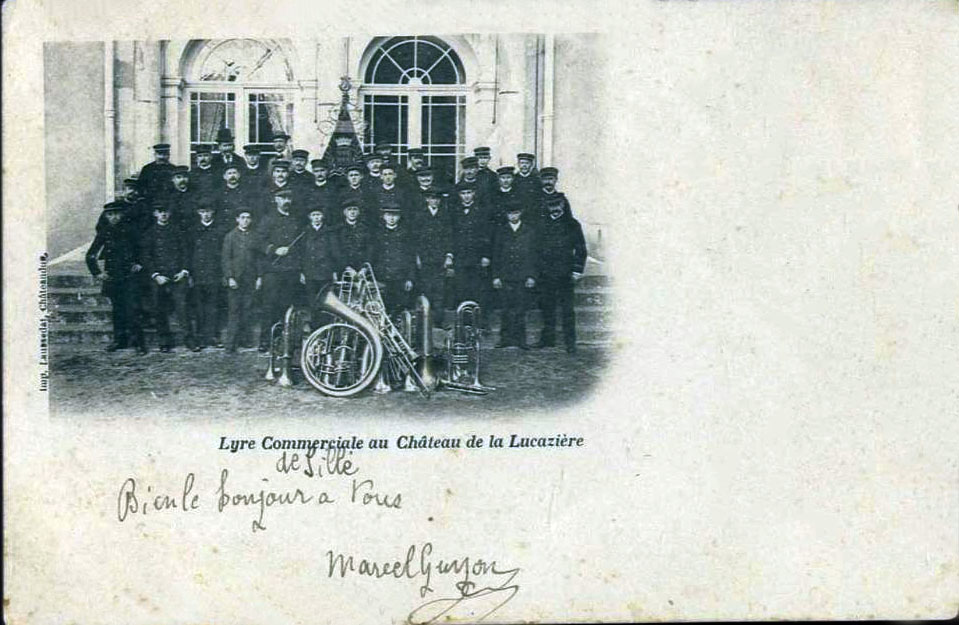 Imp. Laussedat, Châteaudun
Lyre Commerciale au Château de la Lucazière
de Sillé
Bien le bonjour a Vous
Marcel Guyon